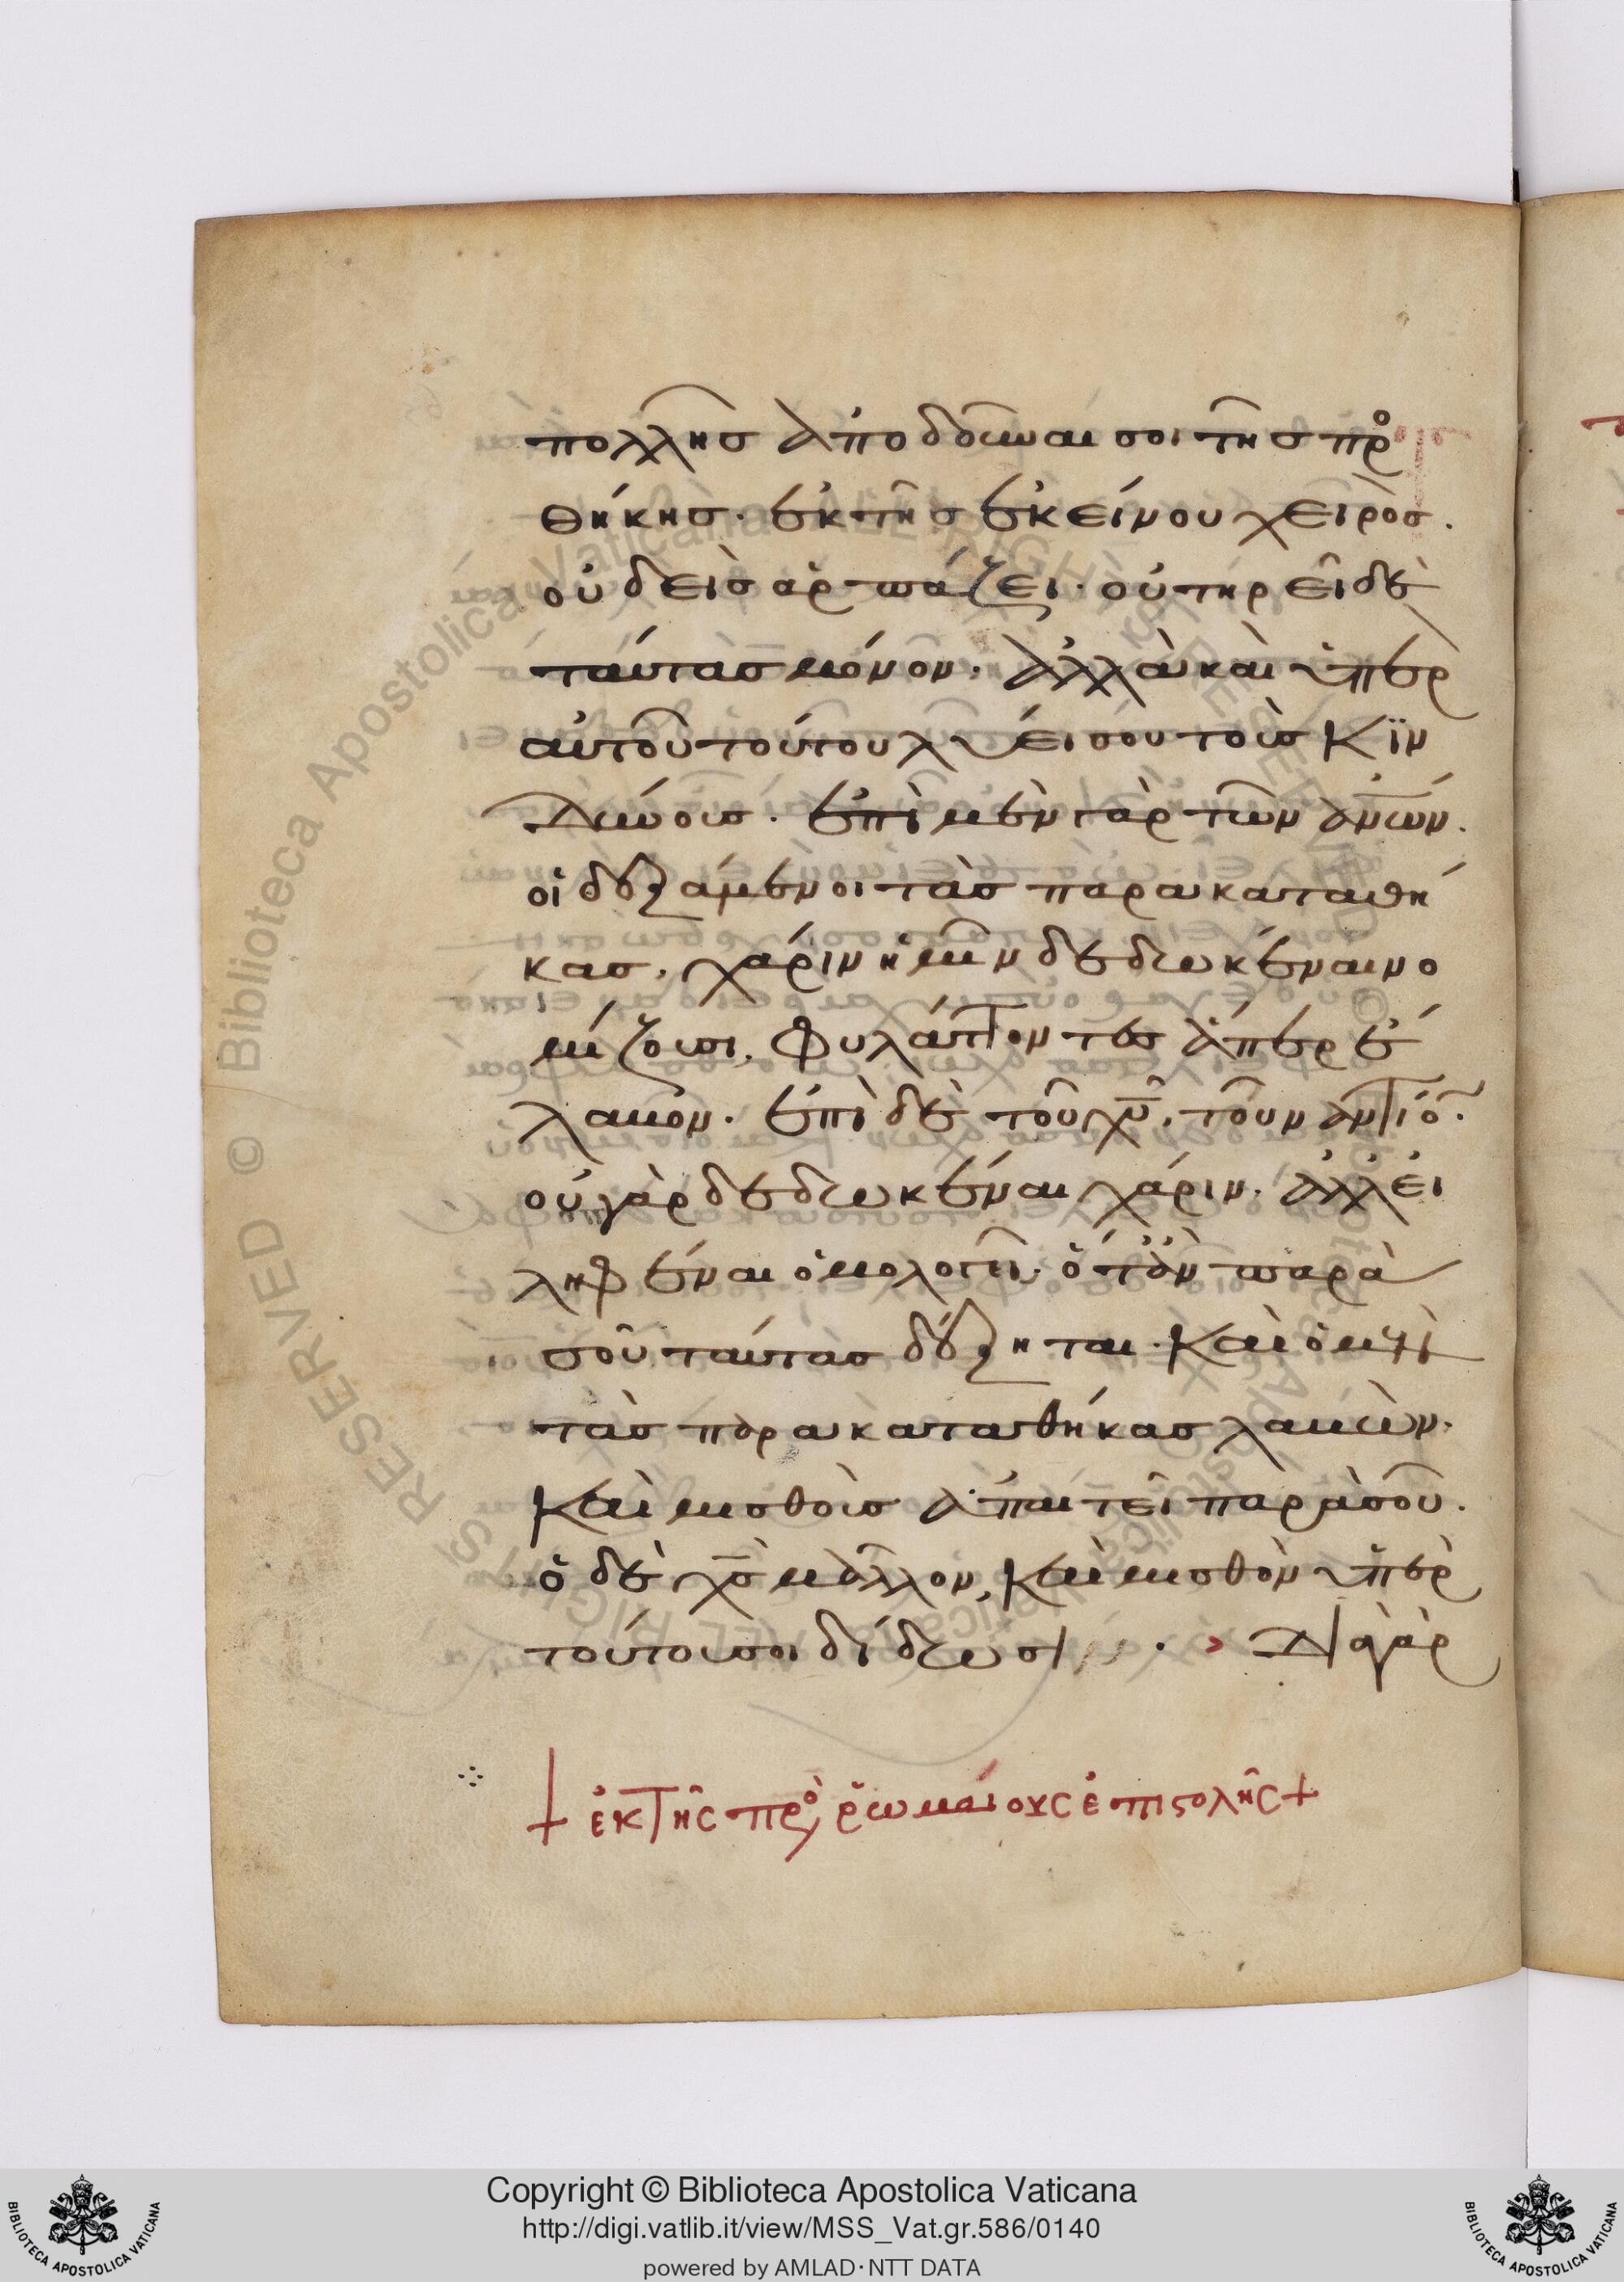 πολλῆς ἀποδοῦναι σοι τῆς προ
θήκης. ἐκ τῆς ἐκείνου χειρὸς.
οὐδεὶς ἁρπάζει. οὐ τηρεῖ δὲ
ταύτας μόνον. ἀλλὰ καὶ ὑπὲρ
αὐτοῦ τούτου λύει σου τοὺς κϊν
δύνους. ἐπὶ μὲν γὰρ τῶν ἀνων.
οἱ δεξάμενοι τὰς παρακαταθή
κας, χάριν ἡμῖν δεδωκέναι νο
μίζουσι, φυλάττοντες ἅπερ ἔ
λαβον. ἐπὶ δὲ τοῦ χυ, τουναντίον.
οὐ γὰρ δεδωκέναι χάριν. ἀλλ' εἰ
ληφέναι ὁμολογεῖ. ὅτ' ἂν παρὰ
σοῦ ταύτας δέξηται. καὶ ὁ μὲν
τὰς παρακαταθήκας λαβὼν.
καὶ μισθοὺς ἀπαιτεῖ παρὰ σοῦ.
ὁ δὲ χς μᾶλλον, καὶ μισθὸν ὑπὲρ
τούτου σοι δίδωσι. Διγὰρ
+ ἐκ τῆς πρὸς ῥωμαίους ἐπιστολῆς +
Copyright © Biblioteca Apostolica Vaticana
http://digi.vatlib.it/view/MSS_Vat.gr.586/0140
powered by AMLAD·NTT DATA
BIBLIOTECA APOSTOLICA VATICANA
BIBLIOTECA APOSTOLICA VATICANA